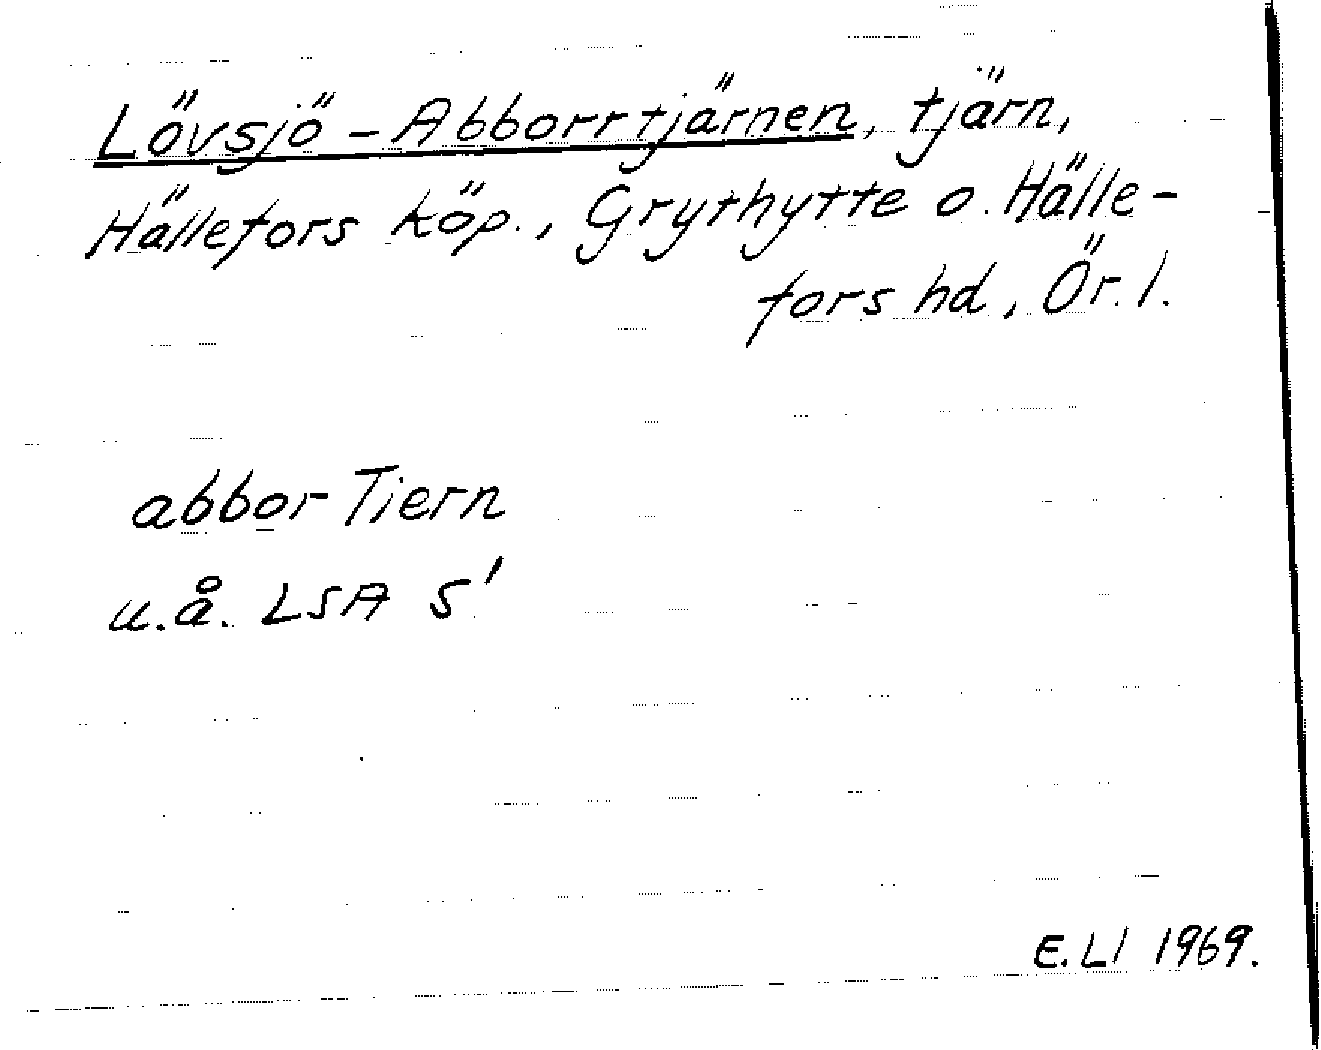 Lövsjö-Abborrtjärnen, tjärn,
Hällefors köp., Grythytte o. Hälle-
fors hd, Ör. l.
abbor Tiern
u.å. LSA S'
E. LI 1969.